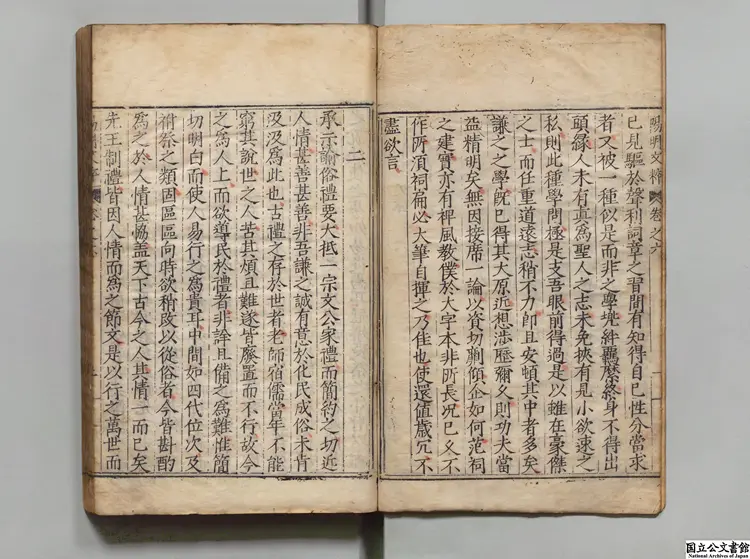 陽明文粹 卷之六
已見驅於聲利詞章之習間有知得自己性分當求
者又被一種似是而非之學兜絆羈縻終身不得出
頭緣人未有真為聖人之志未免挾有見小欲速之
私則此種學問極是支吾眼前得過是以雖在豪傑
之士而任重道遠志稍不力即且安頓其中者多矣
謙之之學既已得其大原近想涉歷彌久則功夫當
益精明矣無因接席一論以資切劘傾企如何范祠
之建實亦有裨風教僕於大字本非所長況已久不
作所須祠扁必大筆自揮之乃佳也使還值歲冗不
盡欲言
二
承示諭俗禮要大抵一宗文公家禮而簡約之切近
人情甚善甚善非吾謙之誠有意於化民成俗未肯
汲汲為此也古禮之存於世者老師宿儒當年不能
窮其說世之人苦其煩且難遂皆廢置而不行故今
之為人上而欲導民於禮者非詳且備之為難惟簡
切明白而使人易行之為貴耳中間如四代位次及
祔祭之類固區區向時欲稍改以從俗者今皆斟酌
為之於人情甚協蓋天下古今之人其情一而已矣
先王制禮皆因人情而為之節文是以行之萬世而
国立公文書館
National Archives of Japan